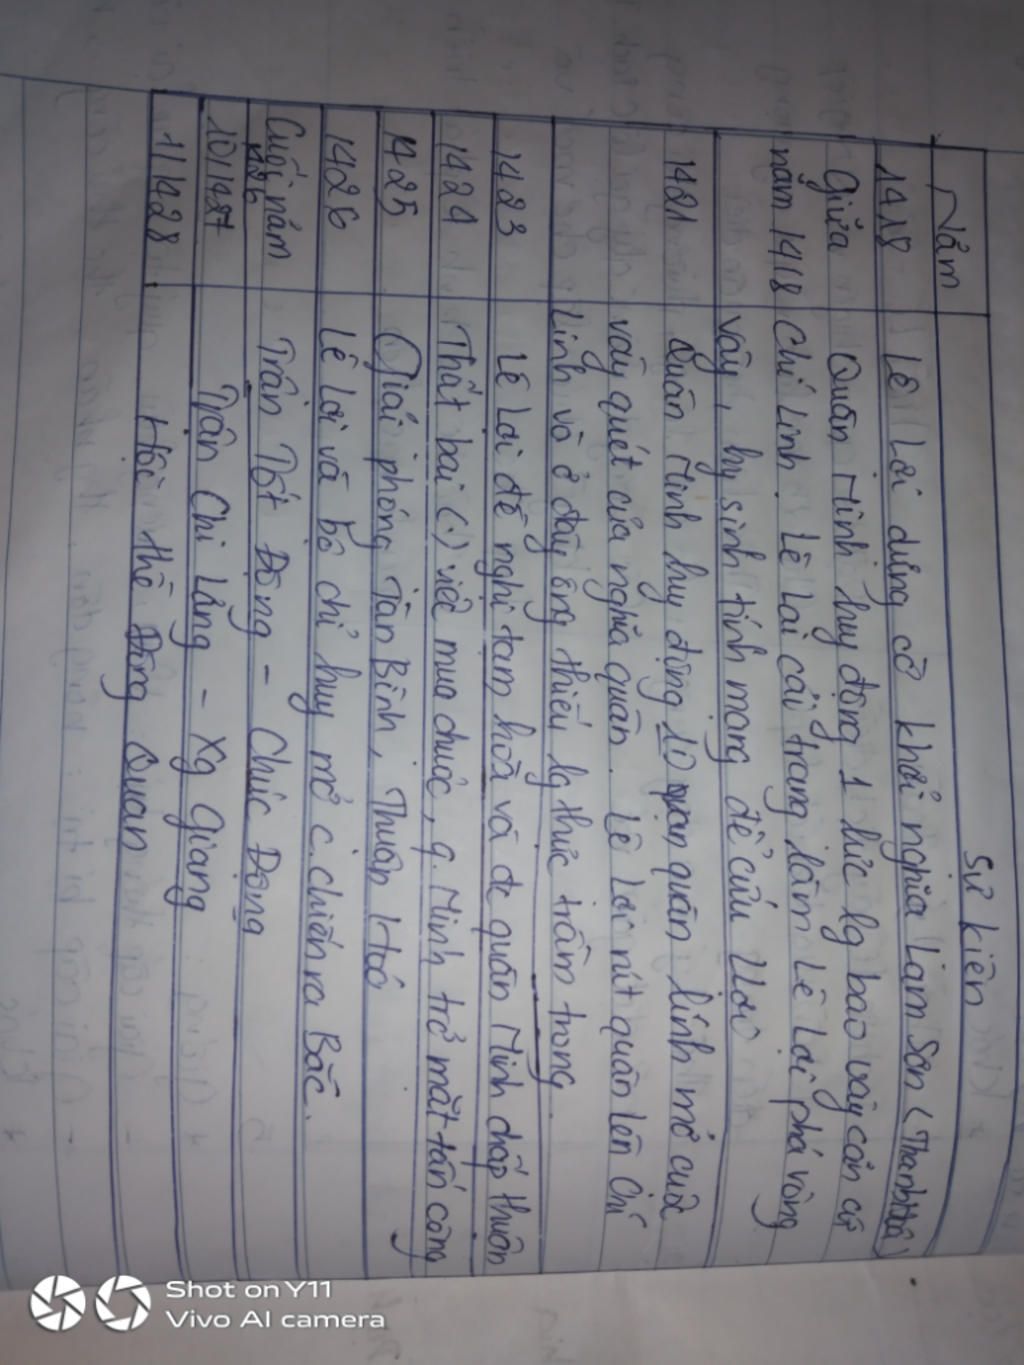 Năm Sự kiện
1418 Lê Lợi dựng cờ khởi nghĩa Lam Sơn (Thanh Hoá)
Giữa Quân Minh huy động 1 lực lg bao vây căn cứ
năm 1418 Chí Linh. Lê Lai cải trang làm Lê Lợi phá vòng
vây, hy sinh tính mạng để cứu
1421 Quân Minh huy động quân lính mở cuộc
vây quét của nghĩa quân. Lê Lợi rút quân lên Chí
Linh và ở đây ông thiếu lg thực trầm trọng.
1423 Lê Lợi đề nghị tạm hoà và đc quân Minh chấp thuận
1424 Thất bại (.) việc mua chuộc, q. Minh trở mặt tấn công
1425 Giải phóng Tân Bình, Thuận Hoá
1426 Lê Lợi và bộ chỉ huy mở c.chiến ra Bắc.
Cuối năm Trận Tốt Động - Chúc Động
1426
10/1427 Trận Chi Lăng - Xg Giang
1/1428 Hội thề Đông Quan
Shot on Y11
Vivo AI camera